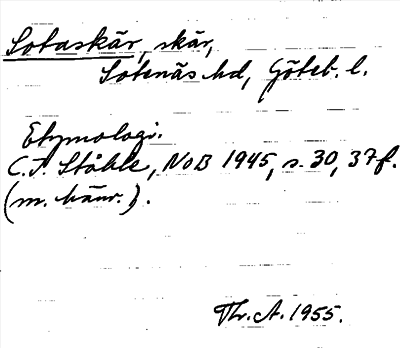 Sotaskär, skär,
Sotenäs hd, Göteb. l.
Etymologi.
C.I. Ståhle, NoB 1945, s. 30, 37f.
(m. hänv.).
Th. A. 1955.